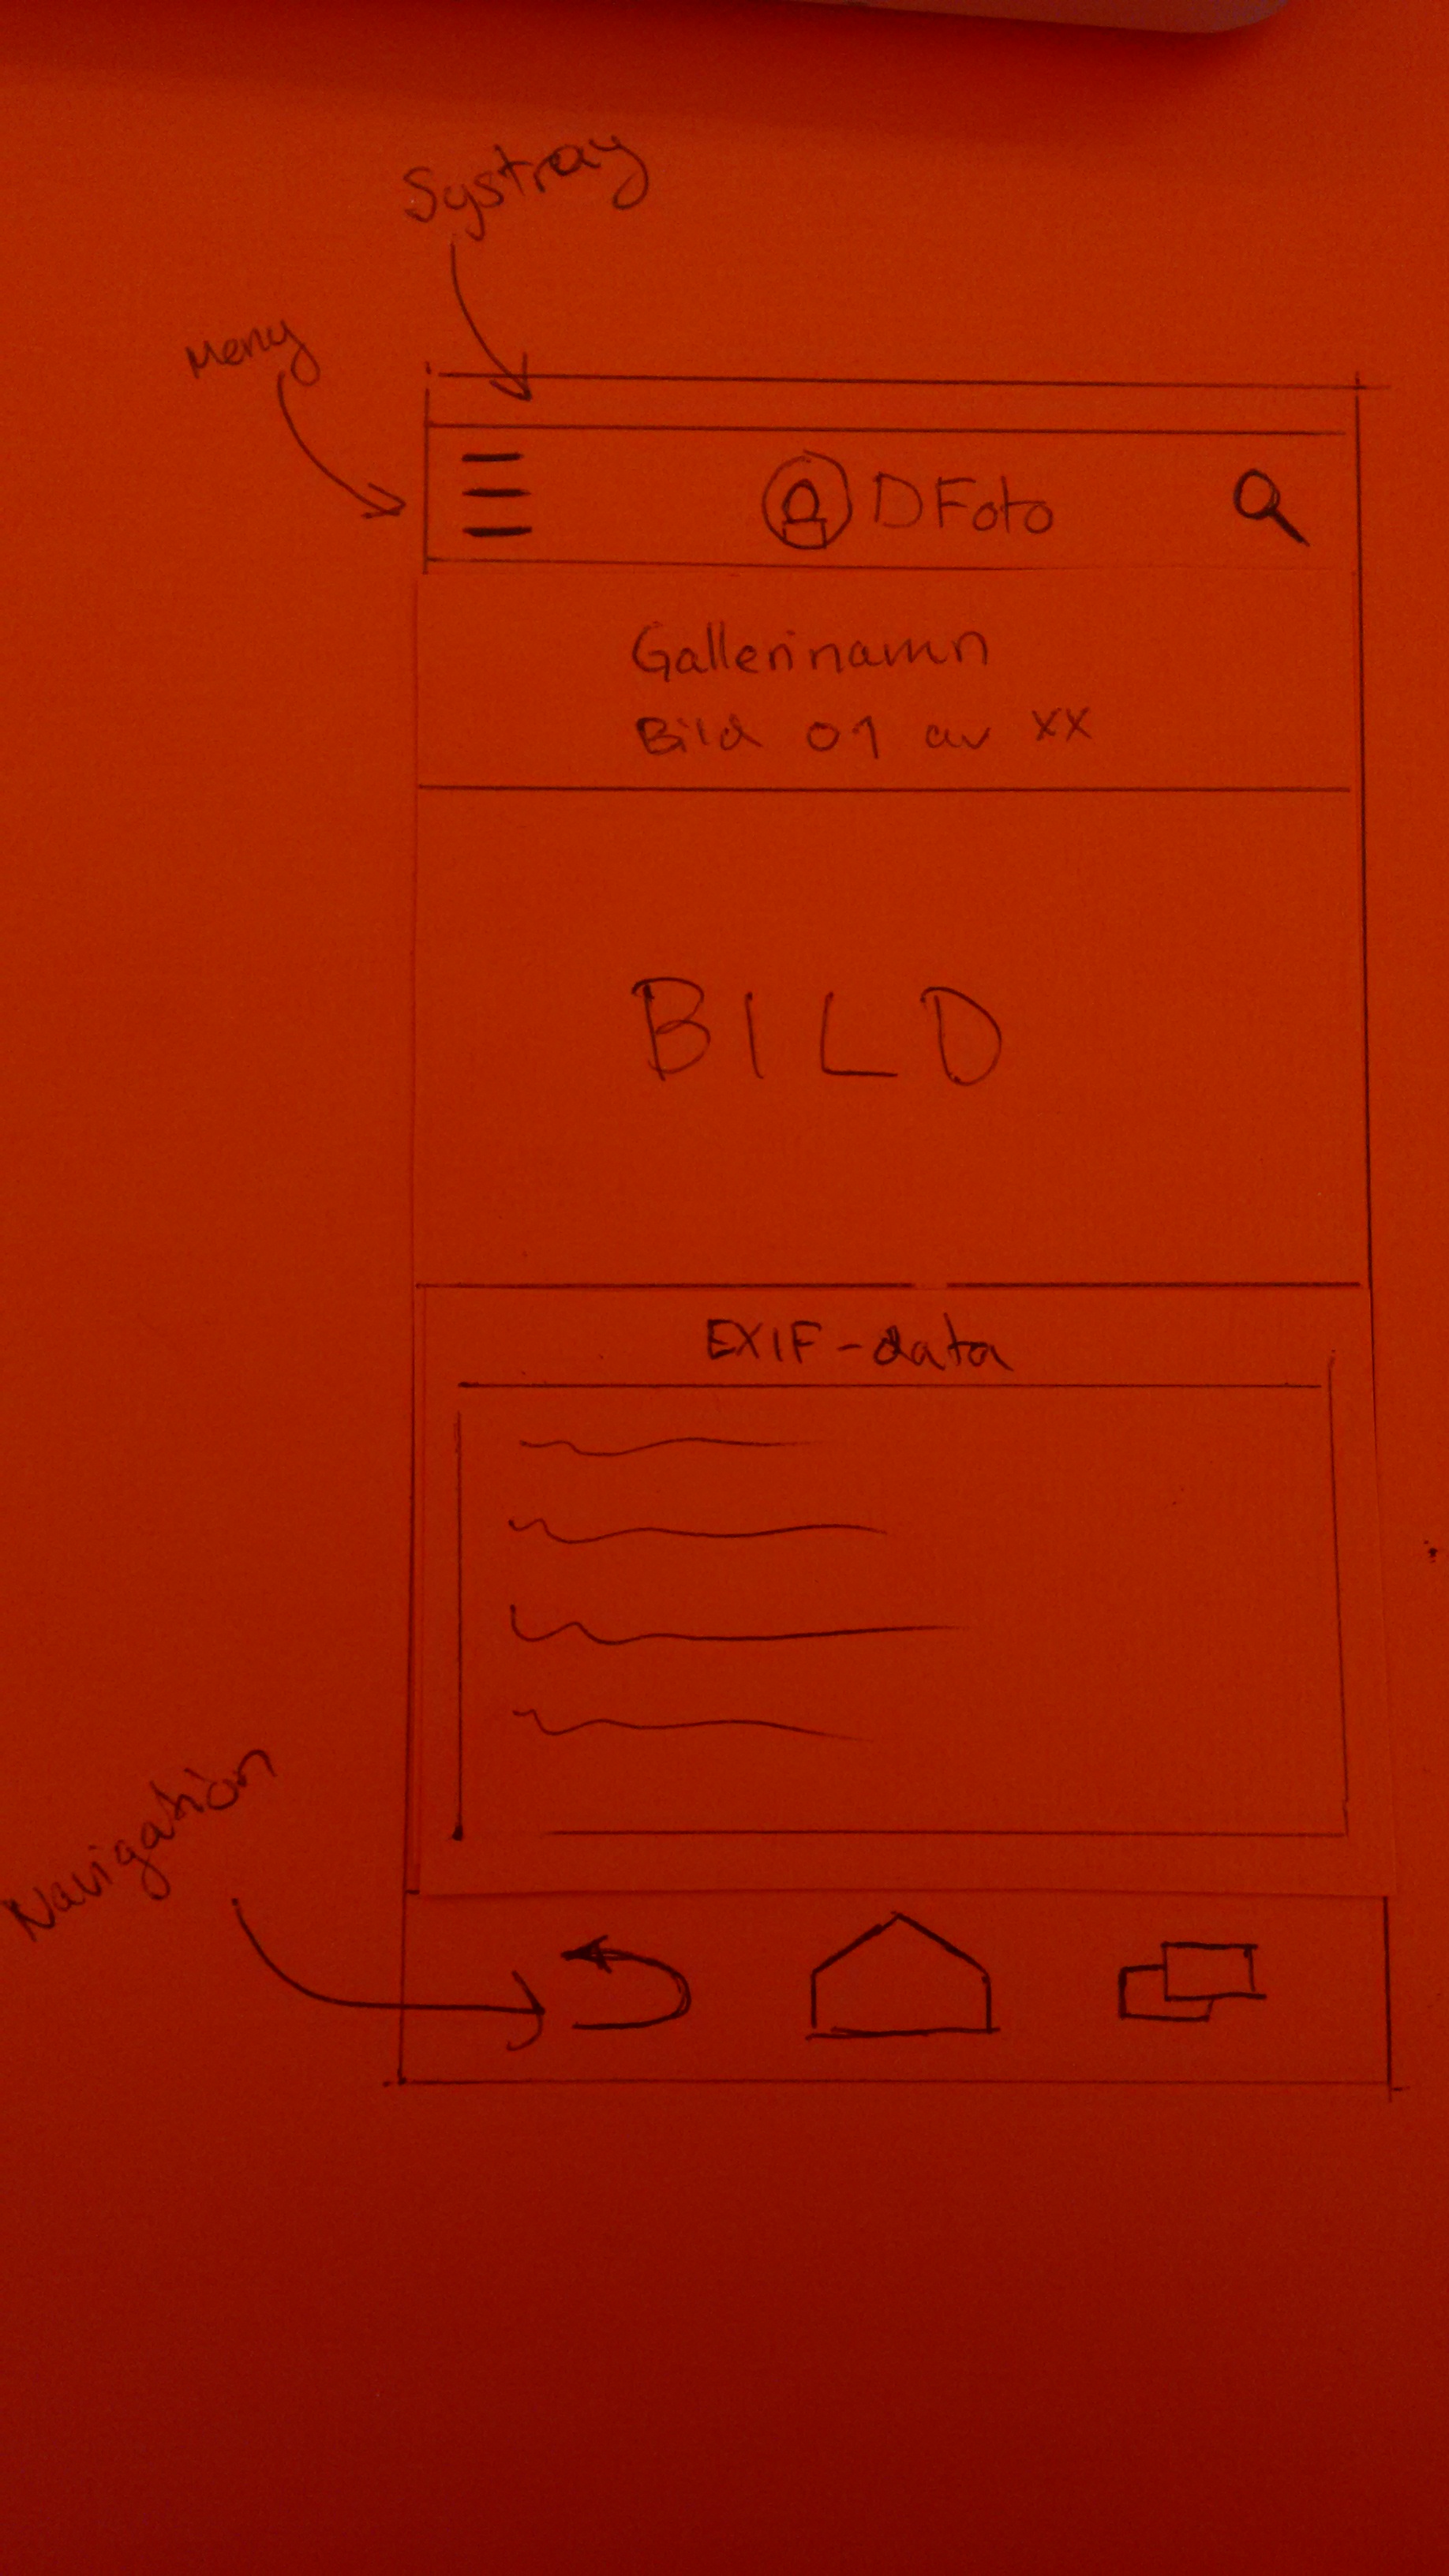 Systray
Meny
DFoto
Gallerinamn
Bild 01 av xx
BILD
EXIF-data
Navigation